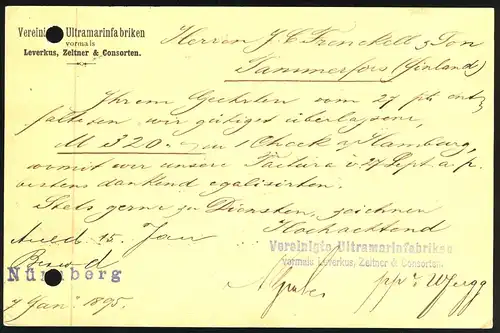 Vereinigte Ultramarinfabriken
vormals
Leverkus, Zeltner & Consorten.
Herren J. C. Frenckell & Son
Tammerfors (Finland)
Ihrem Geehrten vom 27 pt. ent=
falteten wir gütigst überlassene
M 320.- in 1 Check a/ Hamburg,
womit wir unsere Factura v. 27 Sept. a. p.
bestens dankend egalisirten.
Stets gerne zu Diensten, zeichnen
Hochachtend
Vereinigte Ultramarinfabriken
vormals Leverkus, Zeltner & Consorten.
15. Jan
Nürnberg
7 Jan. 1895.